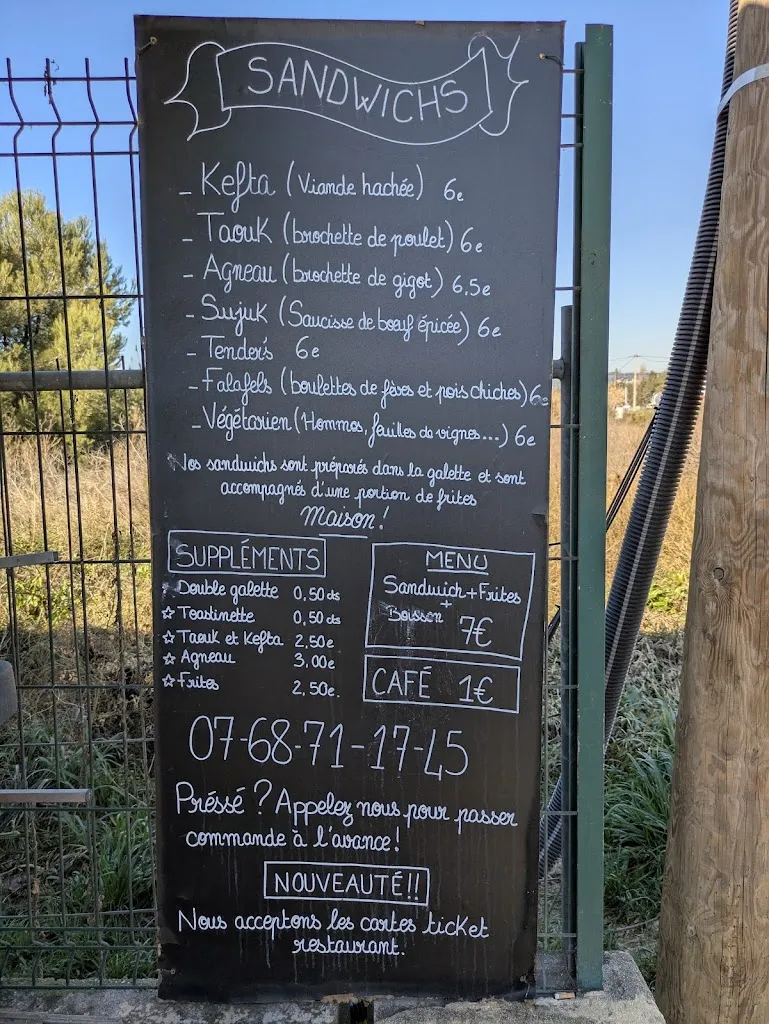 SANDWICHS
- Kefta (Viande hachée) 6e
- Taouk (brochette de poulet) 6e
- Agneau (brochette de gigot) 6,5e
- Sujuk (Saucisse de bœuf épicée) 6e
- Tender's 6e
- Falafels (boulettes de fèves et pois chiches) 6e
- Végétarien (Hommos, feuilles de vignes...) 6e
Nos sandwichs sont préparés dans la galette et sont
accompagnés d'une portion de frites
Maison!
SUPPLÉMENTS
☆ Double galette 0,50cts
☆ Toastinette 0,50cts
☆ Taouk et Kefta 2,50e
☆ Agneau 3,00e
☆ Frites 2,50e.
MENU
Sandwich+Frites
+
Boisson 7€
CAFÉ 1€
07-68-71-17-45
Préssé? Appelez nous pour passer
commande à l'avance!
NOUVEAUTÉ!!
Nous acceptons les cartes ticket
restaurant.